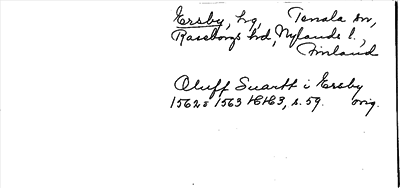 Ersby, hg, Tenala sn,
Raseborgs hd, Nylands l.,
Finland
Oluff Suartt i Ersby
1562 s 1563 HH3, s. 59. orig.